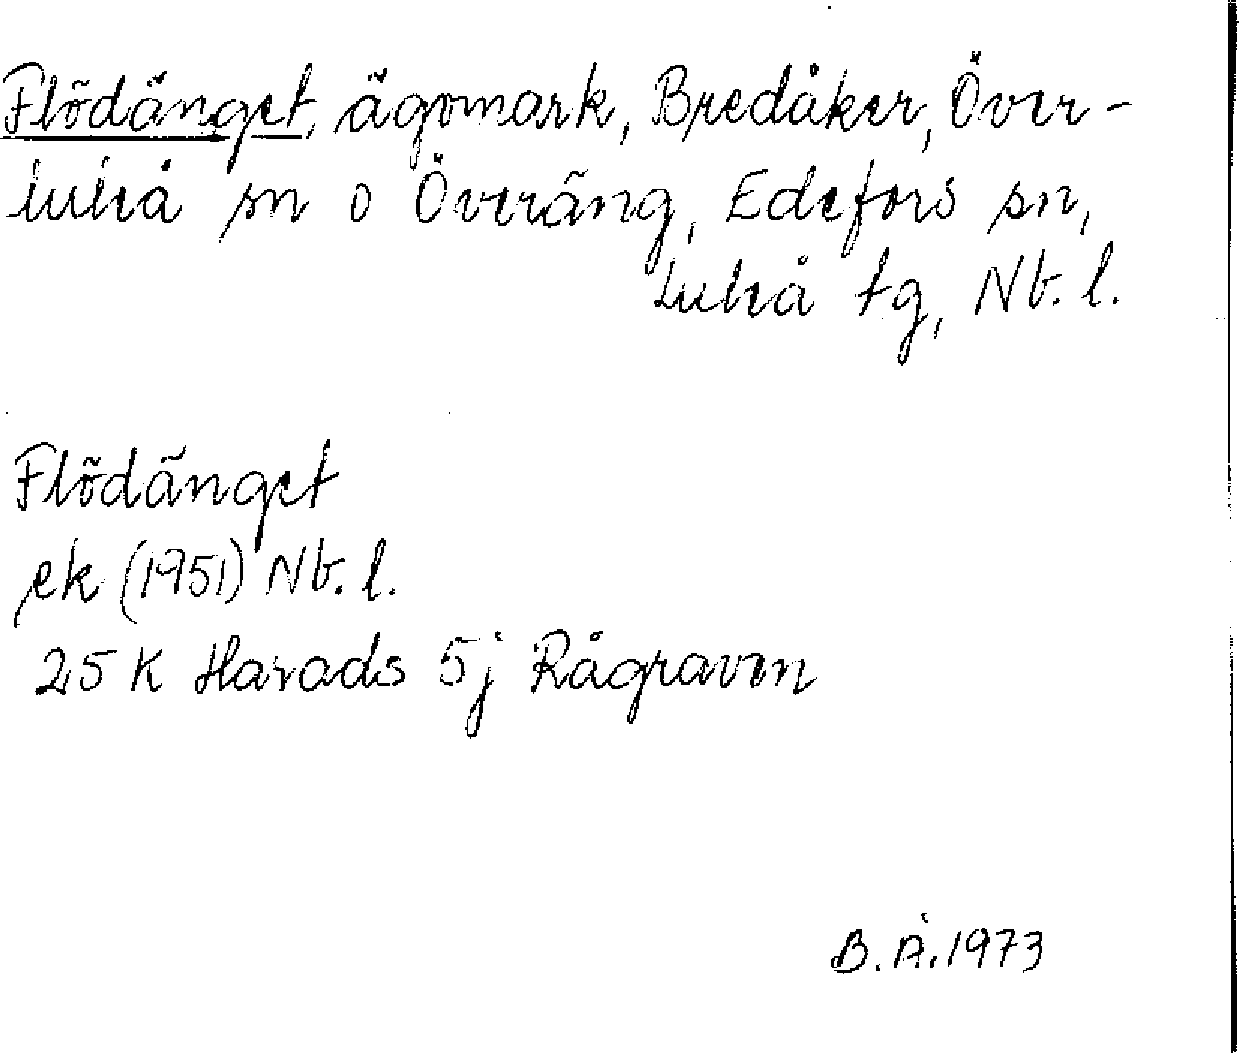 Flödänget, ägomark, Bredåker, Över-
luleå sn o Överäng, Edefors sn,
Luleå tg, Nb. l.
Flödänget
ek (1951) Nb. l.
25 K Harads 5j Rågraven
B.Å. 1973